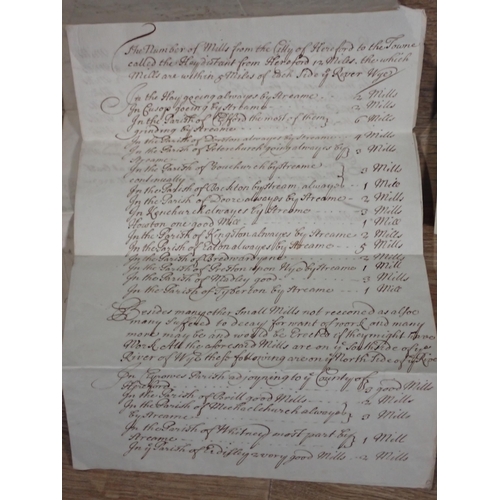 The Number of Mills from the City of Hereford to the Towne
called the Hay distant from Hereford 12 Miles, the which
Mills are within 5 Miles of Each Side ye River Wye
In the Hay going always by Streame 2 Mills
In Cusop going by Streame 2 Mills
In the Parish of Clifford the most of them 6 Mills
grinding by Streame
In the Parish of Dorston always by Streame 4 Mills
In the Parish of Peterchurch going always by 3 Mills
Streame
In the Parish of Vowchurch by Streame 3 Mills
continually
In the Parish of Bachton by Stream always 1
In the Parish of Dore always by Streame 2 Mills
In Kenchurch always by Streame 3 Mills
one good Mill 1
In the Parish of Kingston always by Streame 2 Mills
In the Parish of Eaton always by Streame 5 Mills
In the Parish of Bredwardyne 2 Mills
In the Parish of Preston upon Wye by Streame 1 Mill
In the Parish of Madley good Mills
In the Parish of Tyberton by Streame 1
Besides many other Small Mills not resconed as alsoe
many Suffered to decay for want of work and many
more may be and would be Erected if they might have
Work All the aforesaid Mills are on ye South side of ye
River of Wye these following are on ye North Side of ye
In Parish adjoyning to ye County of good Mills
Hereford
In the Parish of good Mills 2 Mills
In the Parish of Michaelchurch always 3 Mills
by Streame
In the Parish of Whitney most part by 1 Mill
Streame
In ye Parish of Erdisley 2 very good Mills 2 Mills